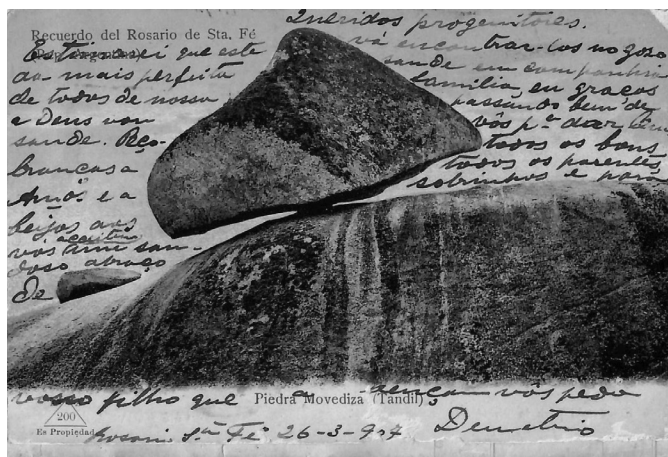 Recuerdo del Rosario de Sta. Fé
(Rep. Argentina)
Queridos progenitores.
Estimarei que este vá encontrar-los no gozo
da mais perfeita saude em companhia
de todos de nossa familia, eu graças
a Deus vou passando bem de
saude. Peço-vós pª dar em
branças a todos os bons
Amos e a todos os parentes,
beijos aos sobrinhos e para
vós aceitem um sau-
doso abraço
de
vosso filho que a bençam vós pede
Piedra Movediza (Tandil)
200
Es Propiedad
Rosario Stª Fé 26-3-907 Demetrio